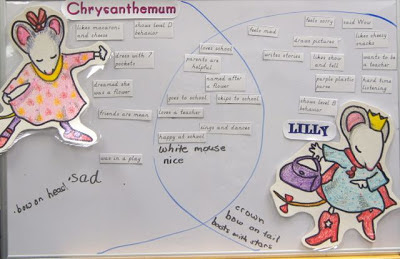 Chrysanthemum
likes macaroni
and cheese
shows level D
behavior
dress with 7
pockets
dreamed she
was a flower
friends are mean
was in a play
sad
bow on head
loves school
parents are
helpful
named after
a flower
goes to school
skips to school
loves a teacher
sings and dances
happy at school
white mouse
nice
feels sorry
said Wow
feels mad
draws pictures
likes cheesy
snacks
writes stories
likes show and
tell
wants to be
a teacher
purple plastic
purse
hard time
listening
shows level B
behavior
LILLY
crown
bow on tail
boots with stars